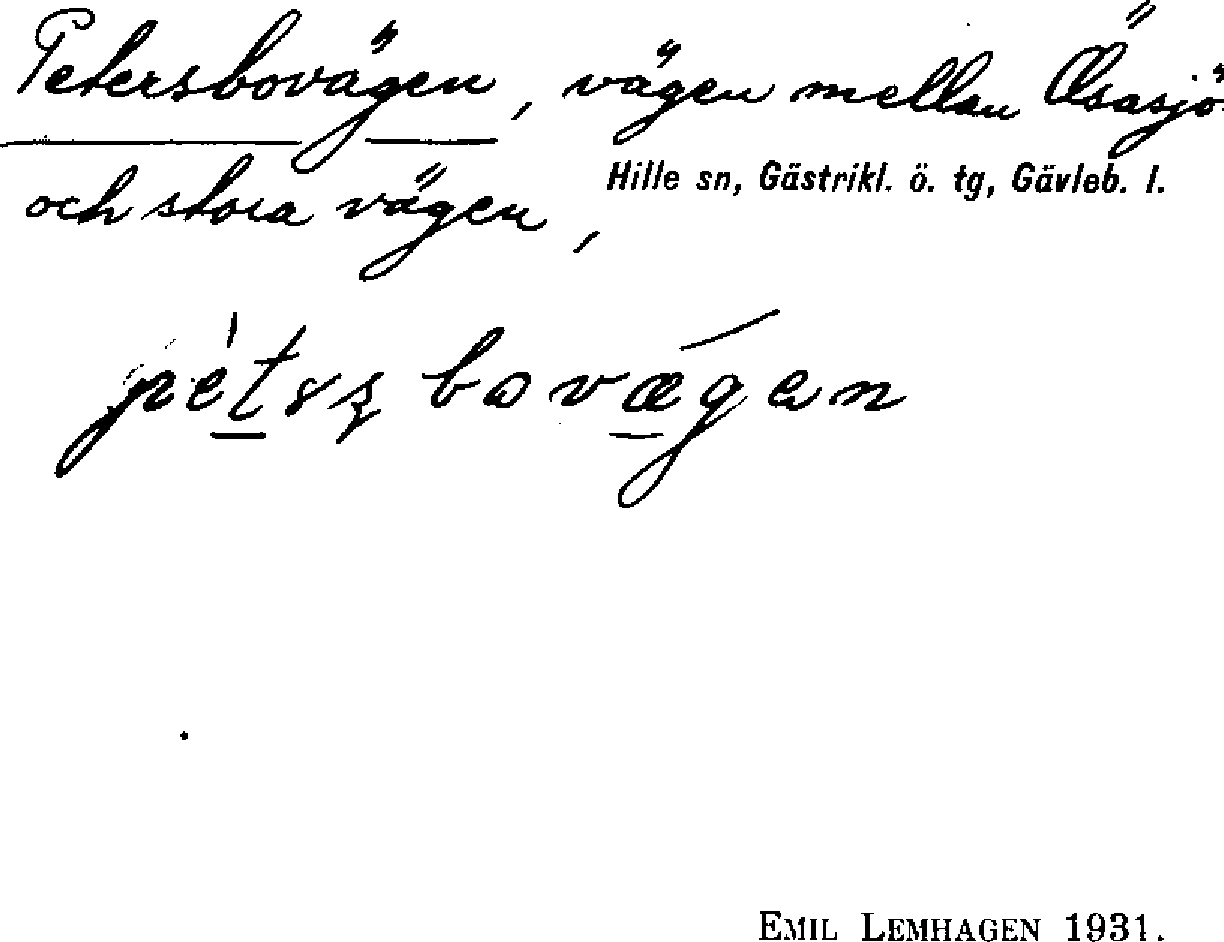 Petersbovägen, vägen mellan Åsasjö
och stora vägen,
Hille sn, Gästrikl. ö. tg, Gävleb. l.
EMIL LEMHAGEN 1931.